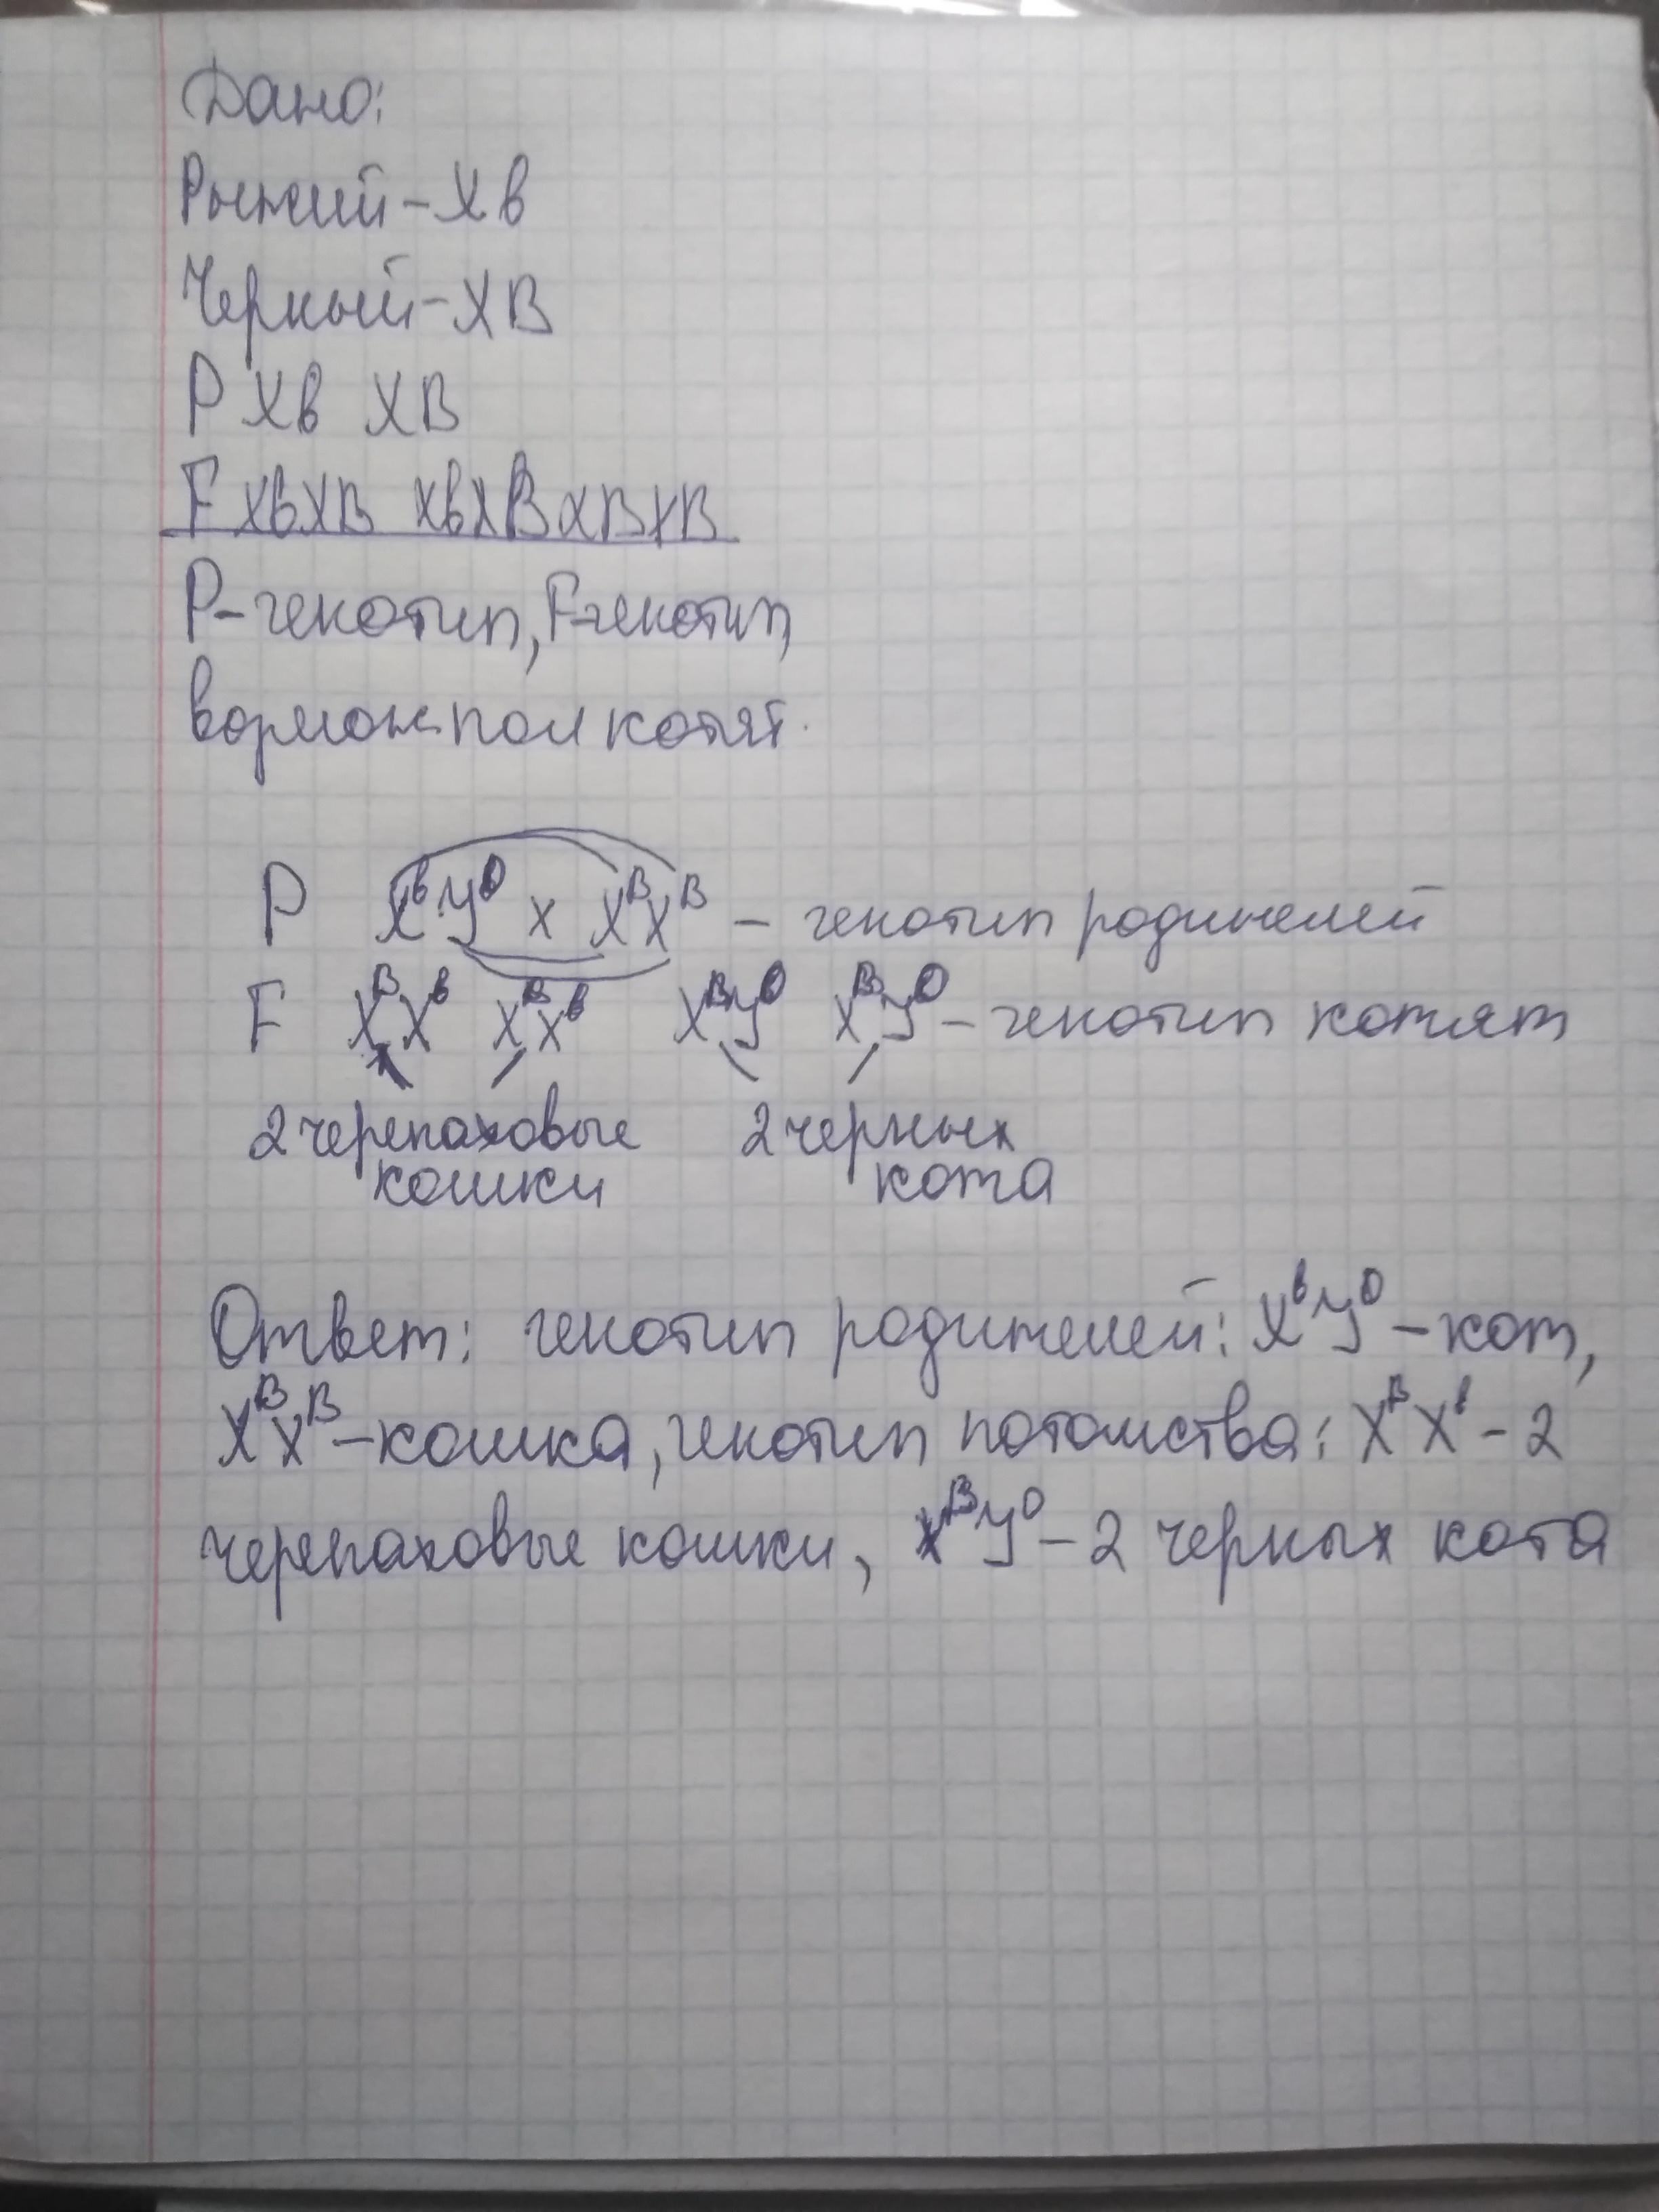 Дано:
Рыжий - Xв
Черный - XB
P Xв XB
F XвXB XвXB XBXB
P - генотип, F-генотип,
пол котят.
P XᵇY⁰ x XᴮXᴮ - генотип родителей
F XᴮXᵇ XᴮXᵇ XᴮY⁰ XᴮY⁰ - генотип котят
2 черепаховые 2 черных
кошки кота
Ответ: генотип родителей: XᵇY⁰ - кот,
XᴮXᴮ - кошка, генотип потомства: XᴮXᵇ - 2
черепаховые кошки, XᴮY⁰ - 2 черных кота